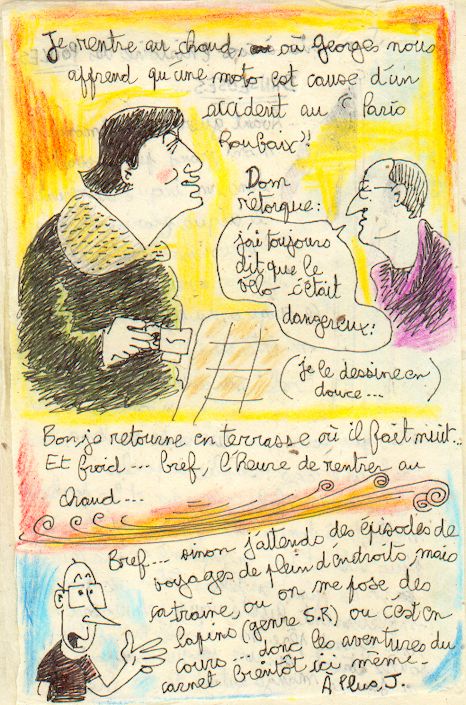 Je rentre au chaud, où Georges nous
apprend qu'une moto est cause d'un
accident au "Paris
Roubaix"!
Dom
rétorque:
j'ai toujours
dit que le
vélo c'était
dangereux!
(je le dessine en
douce...)
Bon je retourne en terrasse où il fait nuit...
Et froid... bref, l'heure de rentrer au
chaud...
Bref... sinon j'attends des épisodes de
voyages de plein d'endroits, mais
ça traine, ou on me pose des
lapins (genre S.R) ou c'est en
cours... donc les aventures du
carnet bientôt ici même-
À Plus, J.